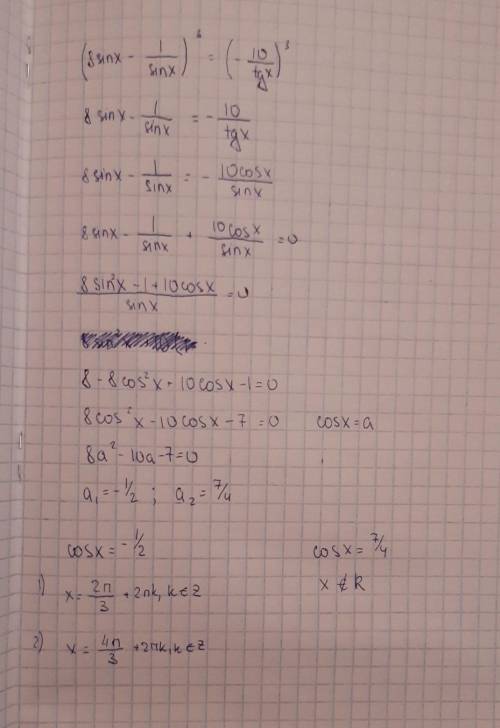 (8sinx - 1/sinx)³ = (-10/tgx)³
8sinx - 1/sinx = -10/tgx
8sinx - 1/sinx = -10cosx/sinx
8sinx - 1/sinx + 10cosx/sinx = 0
8sin²x - 1 + 10cosx/sinx = 0
8 - 8cos²x + 10cosx - 1 = 0
8cos²x - 10cosx - 7 = 0 cosx = a
8a² - 10a - 7 = 0
a₁ = -1/2 ; a₂ = 7/4
cosx = -1/2 cosx = 7/4
1) x = 2π/3 + 2πk, k ∈ Z x ∉ R
2) x = 4π/3 + 2πk, k ∈ Z